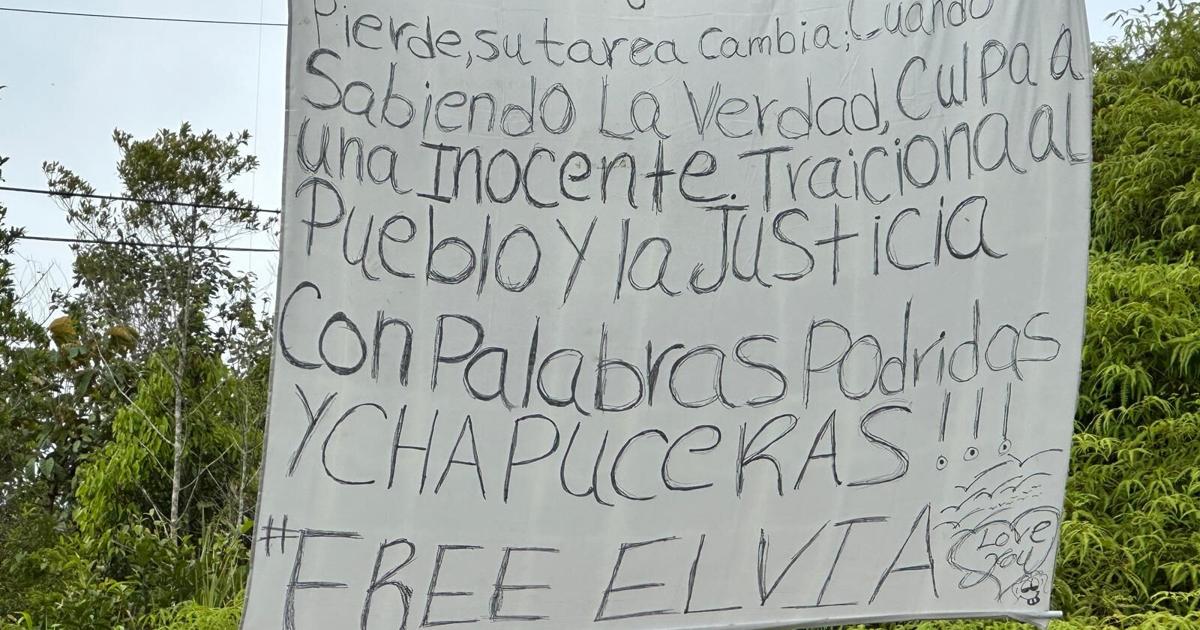 Pierde, su tarea cambia; Cuando
Sabiendo La Verdad, Culpa a
una Inocente. Traiciona al
Pueblo y la Justicia
Con Palabras Podridas
Y CHAPUCERAS!!!
#FREE ELVIA
Love
you